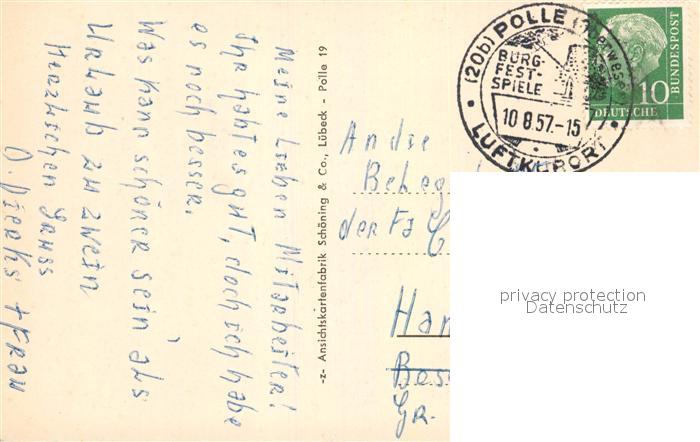 Meine Lieben Mitarbeiter!
Ihr habt es gut, doch ich habe
es noch besser.
Was kann schöner sein als
Urlaub zu zwein
Herzlichen Gruss
O. Dierks + Frau
-z- Ansichtskartenfabrik Schöning & Co., Lübeck - Polle 19
(20b) POLLE (Oberweser)
BURG-
FEST-
SPIELE
10 8.57.-15
LUFTKURORT
10
DEUTSCHE
BUNDESPOST
An die
der Fa
Han
Gr.
privacy protection
Datenschutz